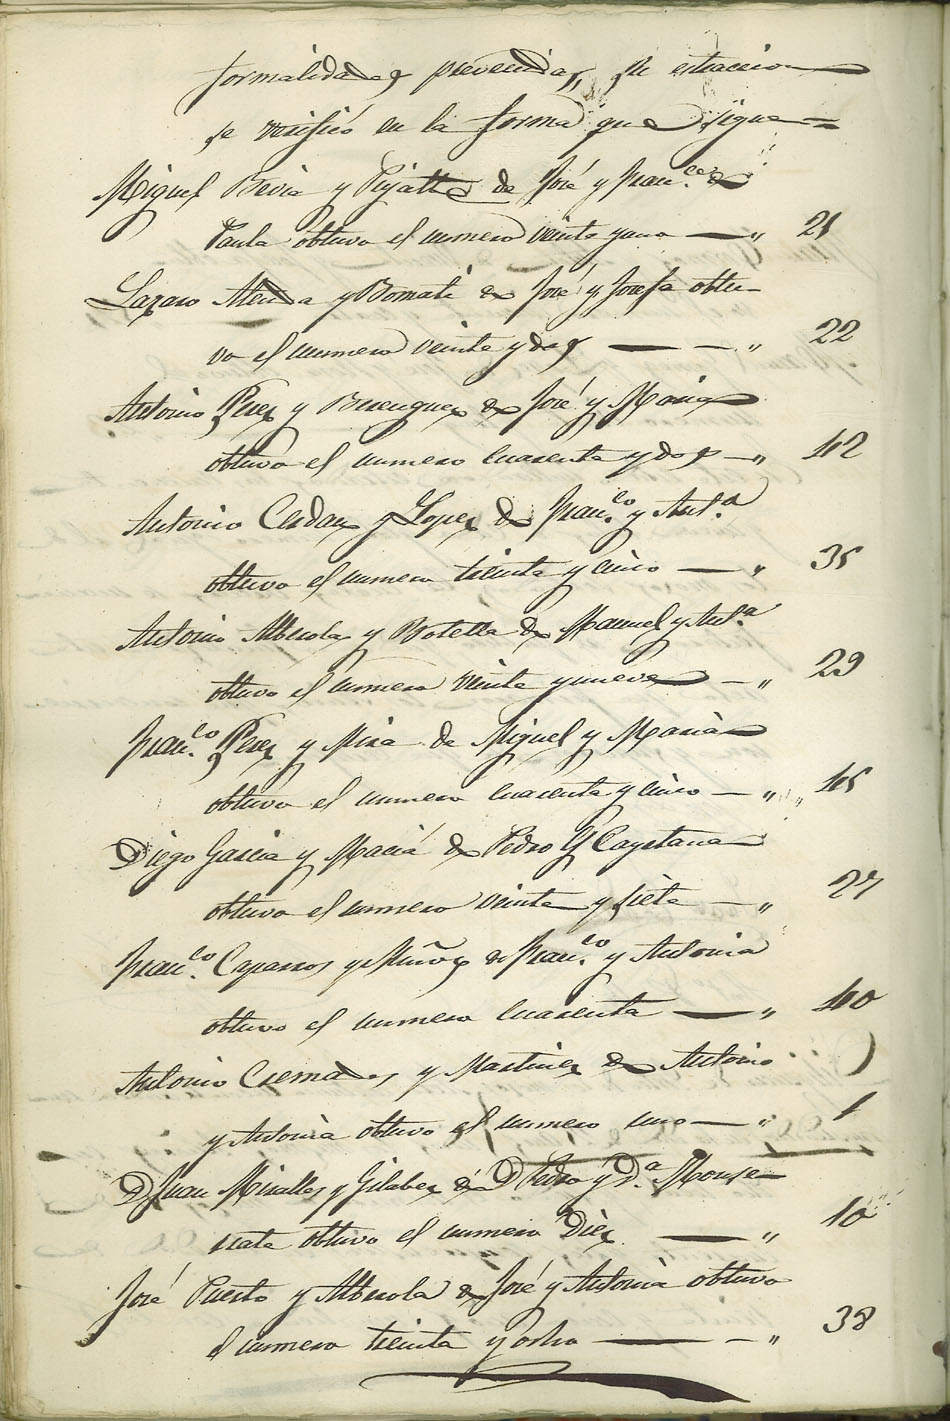 formalidades prevenidas, su estraccion
se verificó en la forma que sigue =
Miguel Bevia y Pijatte de José y Fran.ca de
Paula obtuvo el numero veinte y uno — „ 21
Lazaro Alenda y Bomati de José y Josefa obtu-
vo el numero veinte y dos — — „ 22
Antonio Perez y Berenguer de José y Maria
obtuvo el numero cuarenta y dos — „ 42
Antonio Cerdan y Lopez de Fran.co y Ant.a
obtuvo el numero treinta y cinco — „ 35
Antonio Alberola y Botella de Manuel y Ant.a
obtuvo el numero veinte y nueve — „ 29
Fran.co Perez y Mira de Miguel y Maria
obtuvo el numero cuarenta y cinco — „ 45
Diego Garcia y Maciá de Pedro y Cayetana
obtuvo el numero veinte y siete — „ 27
Fran.co Caparros y Muñoz de Fran.co y Antonia
obtuvo el numero cuarenta — „ 40
Antonio Cremades y Martinez de Antonio
y Antonia obtuvo el numero uno — „ 1
D. Juan Miralles y Gilabert de D. Pedro y D.a Monse-
rrate obtuvo el numero Diez — „ 10
José Puerto y Alberola de José y Antonia obtuvo
el numero treinta y ocho — — „ 38